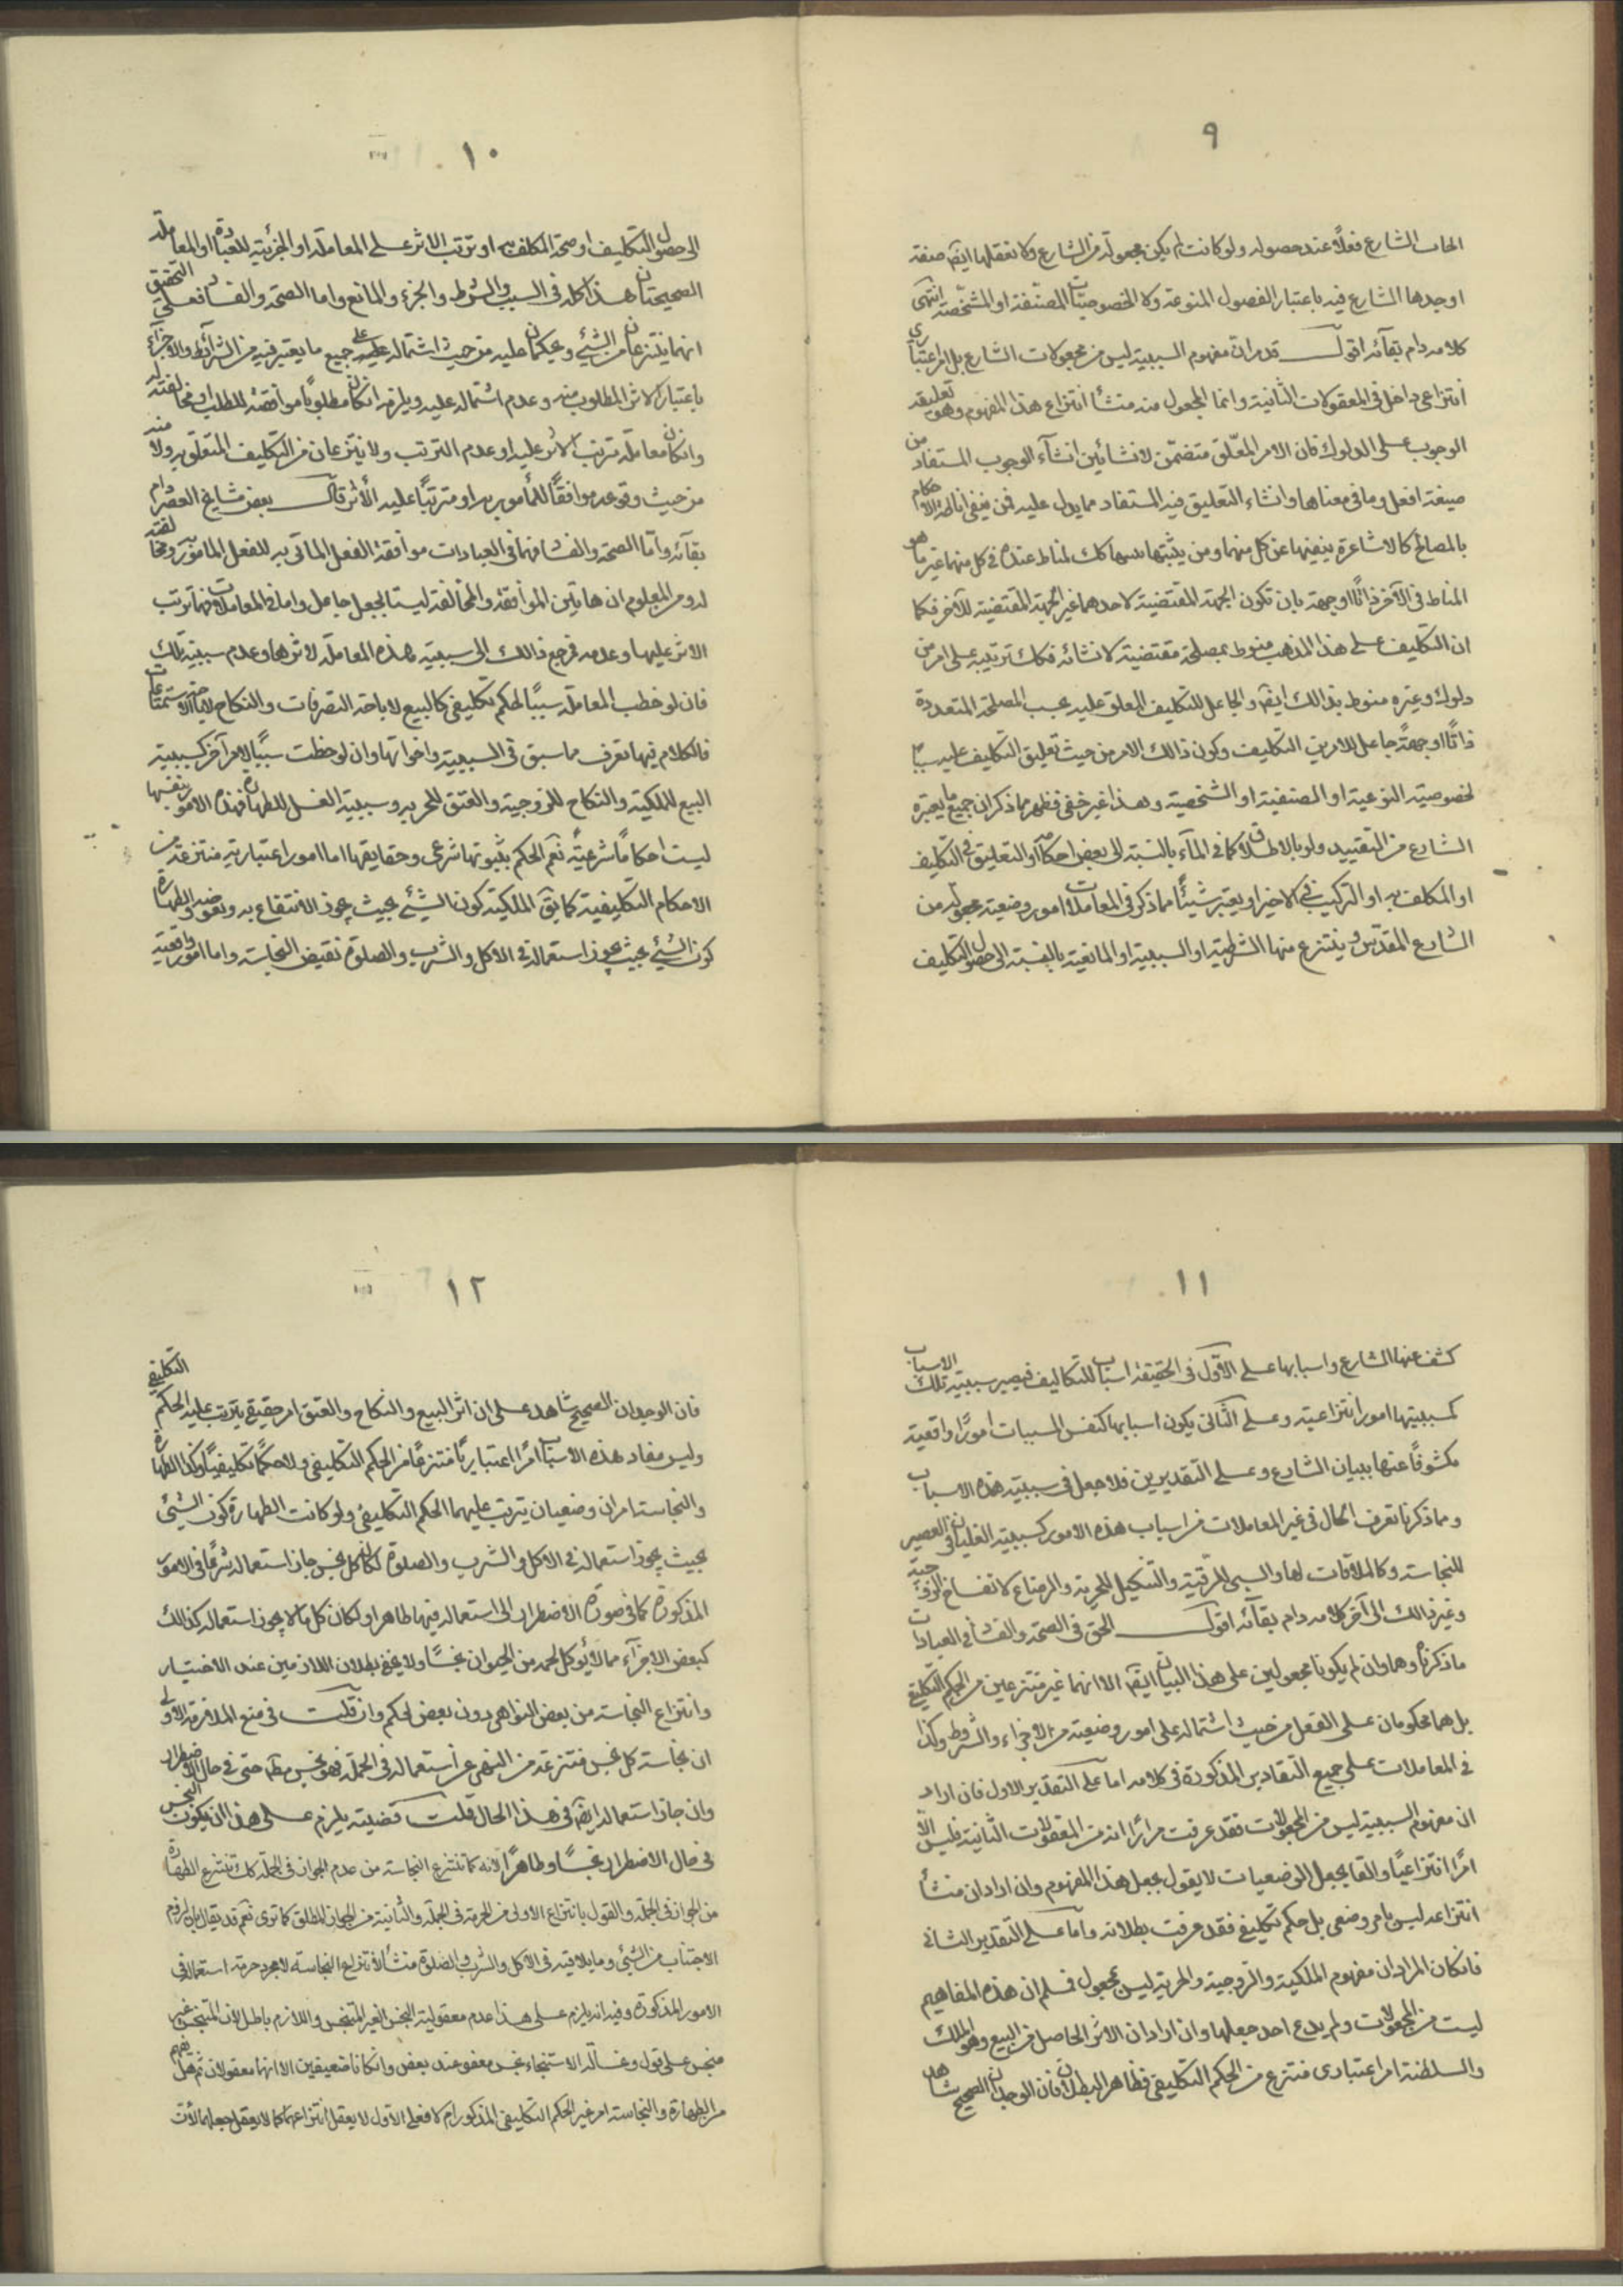 ٩
الشارع فعلاً عند حصوله ولو كانت لم يكن مجعولة من الشارع ولا نعقلها ايضا صفة
اوجدها الشارع فيه باعتبار الفصول المنوعة ولا الخصوصيات المصنفة او المشخصة انتهى
كلامه دام بقائه اقول قد مر ان مفهوم السببية ليس من مجعولات الشارع بل امر اعتباري
انتزاعي داخل في المعقولات الثانية وانما المجعول منه منشأ انتزاع هذا المفهوم وهو تعليقه
الوجوب على الدلوك فان الامر المعلق متضمن لانشائين انشاء الوجوب المستفاد من
صيغة افعل وما في معناها وانشاء التعليق فيه المستفاد مما يدل عليه فمن ينفي اناطة الاحكام
بالمصالح كالاشاعرة ينفيها عن كل منهما ومن يثبتها المناط عنده في كل منهما غير ما هو
المناط في الآخر ذاتًا او جهة بان تكون الجهة المقتضية لاحدهما غير الجهة المقتضية للآخر فكما
ان التكليف على هذا المذهب منوط بمصلحة مقتضية لانشائه فكك ترتيبه على امر من
دلوك وغيره منوط بذالك ايضا والجاعل للتكليف المعلق عليه بحسب المصلحة المتعددة
ذاتًا او جهةً جاعل للامرين التكليف وكون ذالك الامر من حيث تعليق التكليف عليه سببا
لخصوصيته النوعية او الصنفية او الشخصية وهذا غير خفي فظهر مما ذكر ان جميع ما يعتبره
الشارع من التقييد ولو بالاطلاق كما في الماء بالنسبة الى بعض احكامه او التعليق في التكليف
او المكلف به او التركيب في الاخير او يعتبر شيئًا مما ذكر في المعاملات امور وضعية مجعولة من
الشارع المقدس وينتزع منها الشرطية او السببية او المانعية بالنسبة الى حصول التكليف
١٠
الى حصول التكليف او صحة المكلف به او ترتب الاثر على المعاملة او الجزئية للعبادة او المعاملة
الصحيحتان هذا كله في السبب والشرط والجزء والمانع واما الصحة والفساد فعلى التحقيق
انهما ينتزعان من الشيء ويحكمان عليه من حيث اشتماله على جميع ما يعتبر فيه من الشرائط والاجزاء
باعتبار الاثر المطلوب منه وعدم اشتماله عليه ويلزمه ان كان مطلوبًا موافقته للطلب او مخالفته له
وان كان معاملة ترتب الاثر عليه او عدم الترتب ولا ينتزعان من التكليف المتعلق به ولا منه
من حيث وقوعه موافقًا للمأمور به او مترتبًا عليه الأثر قال بعض مشايخ العصر دام
بقائه واما الصحة والفساد فهما في العبادات موافقة الفعل المأتي به للفعل المأمور به ومخالفته
له ومن المعلوم ان هاتين الموافقة والمخالفة ليستا بجعل جاعل واما في المعاملات فهما ترتب
الاثر عليها وعدمه فمرجع ذالك الى سببية هذه المعاملة لاثرها وعدم سببية تلك
فان لوحظت المعاملة سببًا لحكم تكليفي كالبيع لاباحة التصرفات والنكاح لاباحة الاستمتاعات
فالكلام فيها تعرف مما سبق في السببية واخواتها وان لوحظت سببًا لامر آخر كسببية
البيع للملكية والنكاح للزوجية والعتق للحرية وسببية الغسل للطهارة فهذه الامور بنفسها
ليست احكامًا شرعية نعم الحكم بثبوتها شرعي وحقايقها اما امور اعتبارية منتزعة من
الاحكام التكليفية كما يق الملكية كون الشيء بحيث يجوز الانتفاع به وبعوضه والطهارة
كون الشيء بحيث يجوز استعماله في الاكل والشرب والصلوة نقيض النجاسة واما امور واقعية
١١
كشف عنها الشارع واسبابها على الأوّل في الحقيقة اسباب للتكاليف فيصير سببية تلك الاسباب
كمسببيتها امور انتزاعية وعلى الثاني يكون اسبابها كنفس المسببات امورًا واقعية
مكشوفًا عنها ببيان الشارع وعلى التقديرين فلا جعل في سببية هذه الاسباب
ومما ذكرنا تعرف الحال في غير المعاملات من اسباب هذه الامور كسببية الغليان في العصير
للنجاسة وكالملاقات لها والسبي للرقية والتنكيل للحرية والرضاع لانفساخ الزوجية
وغير ذالك الى آخر كلامه دام بقائه اقول الحق في الصحة والفساد في العبادات
ما ذكرنا وهما وان لم يكونا مجعولين على هذا البيان ايضا الا انهما غير منتزعين من الحكم التكليفي
بل هما محكومان على الفعل من حيث اشتماله على امور وضعية من الاجزاء والشروط وكذا
في المعاملات على جميع التقادير المذكورة في كلامه اما على التقدير الاول فان اراد
ان مفهوم السببية ليس من المجعولات فقد عرفت مرارًا انه من المعقولات الثانية فليس الا
امرًا انتزاعيًا والقائل بجعل الوضعيات لا يقول بجعل هذا المفهوم وان اراد ان منشأ
انتزاعه ليس بامر وضعي بل حكم تكليفي فقد عرفت بطلانه واما على التقدير الثاني
فان كان المراد ان مفهوم الملكية والزوجية والحرية ليس بمجعول فمسلم ان هذه المفاهيم
ليست من المجعولات ولم يدع احد جعلها وان اراد ان الاثر الحاصل من البيع وهو الملك
والسلطنة امر اعتباري منتزع من الحكم التكليفي فظاهر البطلان فان الوجدان الصحيح شاهد
١٢
فان الوجدان الصحيح شاهد على ان اثر البيع والنكاح والعتق امر حقيقي يترتب عليه الحكم التكليفي
وليس مفاد هذه الاسباب امرًا اعتباريًا منتزعًا من الحكم التكليفي ولا حكمًا تكليفيًا وكذا الطهارة
والنجاسة امران وضعيان يترتب عليهما الحكم التكليفي ولو كانت الطهارة كون الشيئ
بحيث يجوز استعماله في الاكل والشرب والصلوة لكان كل نجس جاز استعماله شرعًا في الامور
المذكورة كما في صورة الاضطرار الى استعماله فيها طاهرا ولكان كل ما لا يجوز استعماله كذالك
كبعض الاجزاء مما لا يؤكل لحمه من الحيوان نجسًا ولا يخفى بطلان اللازمين عند الاختيار
وانتزاع النجاسة من بعض النواهي دون بعض تحكم وان قلت في منع الملازمة الاولى
ان نجاسة كل نجس منتزعة من النهي عن استعماله في الجملة فهو نجس مطلقا حتى في حال الاضطرار
وان جاز استعماله ايضا في هذا الحال قلت قضيته يلزم على هذا ان يكون النجس
في حال الاضطرار نجسًا وطاهرًا لانه كما تنتزع النجاسة من عدم الجواز في الجملة كك تنتزع الطهارة
من الجواز في الجملة والقول بانتزاع الاولى من الحرمة في الجملة والثانية من الجواز المطلق كما ترى نعم قد يقال بان لزوم
الاجتناب من الشيئ وما يلاقيه في الاكل والشرب والصلوة منشأ لانتزاع النجاسة لا مجرد حرمة استعماله في
الامور المذكورة وفيه انه يلزم على هذا عدم معقولية النجس الغير المنجس واللازم باطل لان المتنجس غير
منجس على قول وغسالة الاستنجاء نجس معفو عند بعض وان كانا ضعيفين الا انهما معقولان ثم هل
من الطهارة والنجاسة امر غير الحكم التكليفي المذكور ام لا فعلى الاول لا يعقل انتزاعهما كما لا يعقل جعلهما لأن